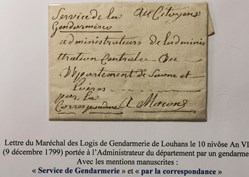 Service de la Gendarmerie
aux Citoyens
administrateurs de l'administration Centrale du
Département de Saone et
Loire
par la
Correspondance
à Macon
Lettre du Maréchal des Logis de Gendarmerie de Louhans le 10 nivôse An VI
(9 décembre 1799) portée à l'Administrateur du département par un gendarme
Avec les mentions manuscrites :
« Service de Gendarmerie » et « par la correspondance »